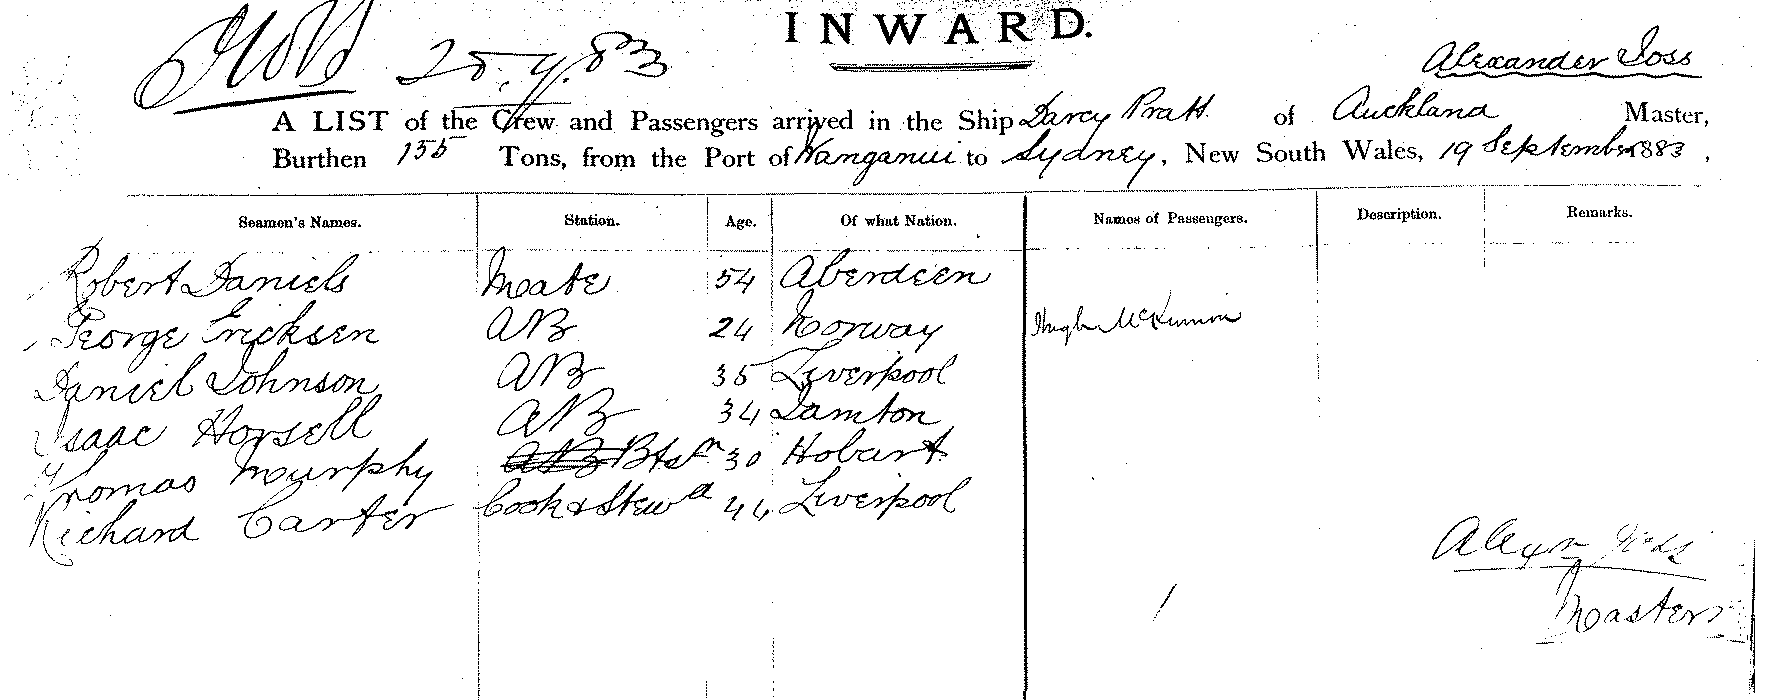 INWARD.
25.9.83
Alexander Joss
A LIST of the Crew and Passengers arrived in the Ship Darcy Pratt of Auckland Master,
Burthen 155 Tons, from the Port of Wanganui to Sydney, New South Wales, 19 September 1883,
Seamen's Names. Station. Age. Of what Nation. Names of Passengers. Description. Remarks.
Robert Daniels Mate 54 Aberdeen
George Ericksen AB 24 Norway Hugh McKinnon
Daniel Johnson AB 35 Liverpool
Isaac Horsell AB 34 Lamton
Thomas Murphy AB Btsn 30 Hobart
Richard Carter Cook & Stewd 44 Liverpool
Alexr Joss
Master